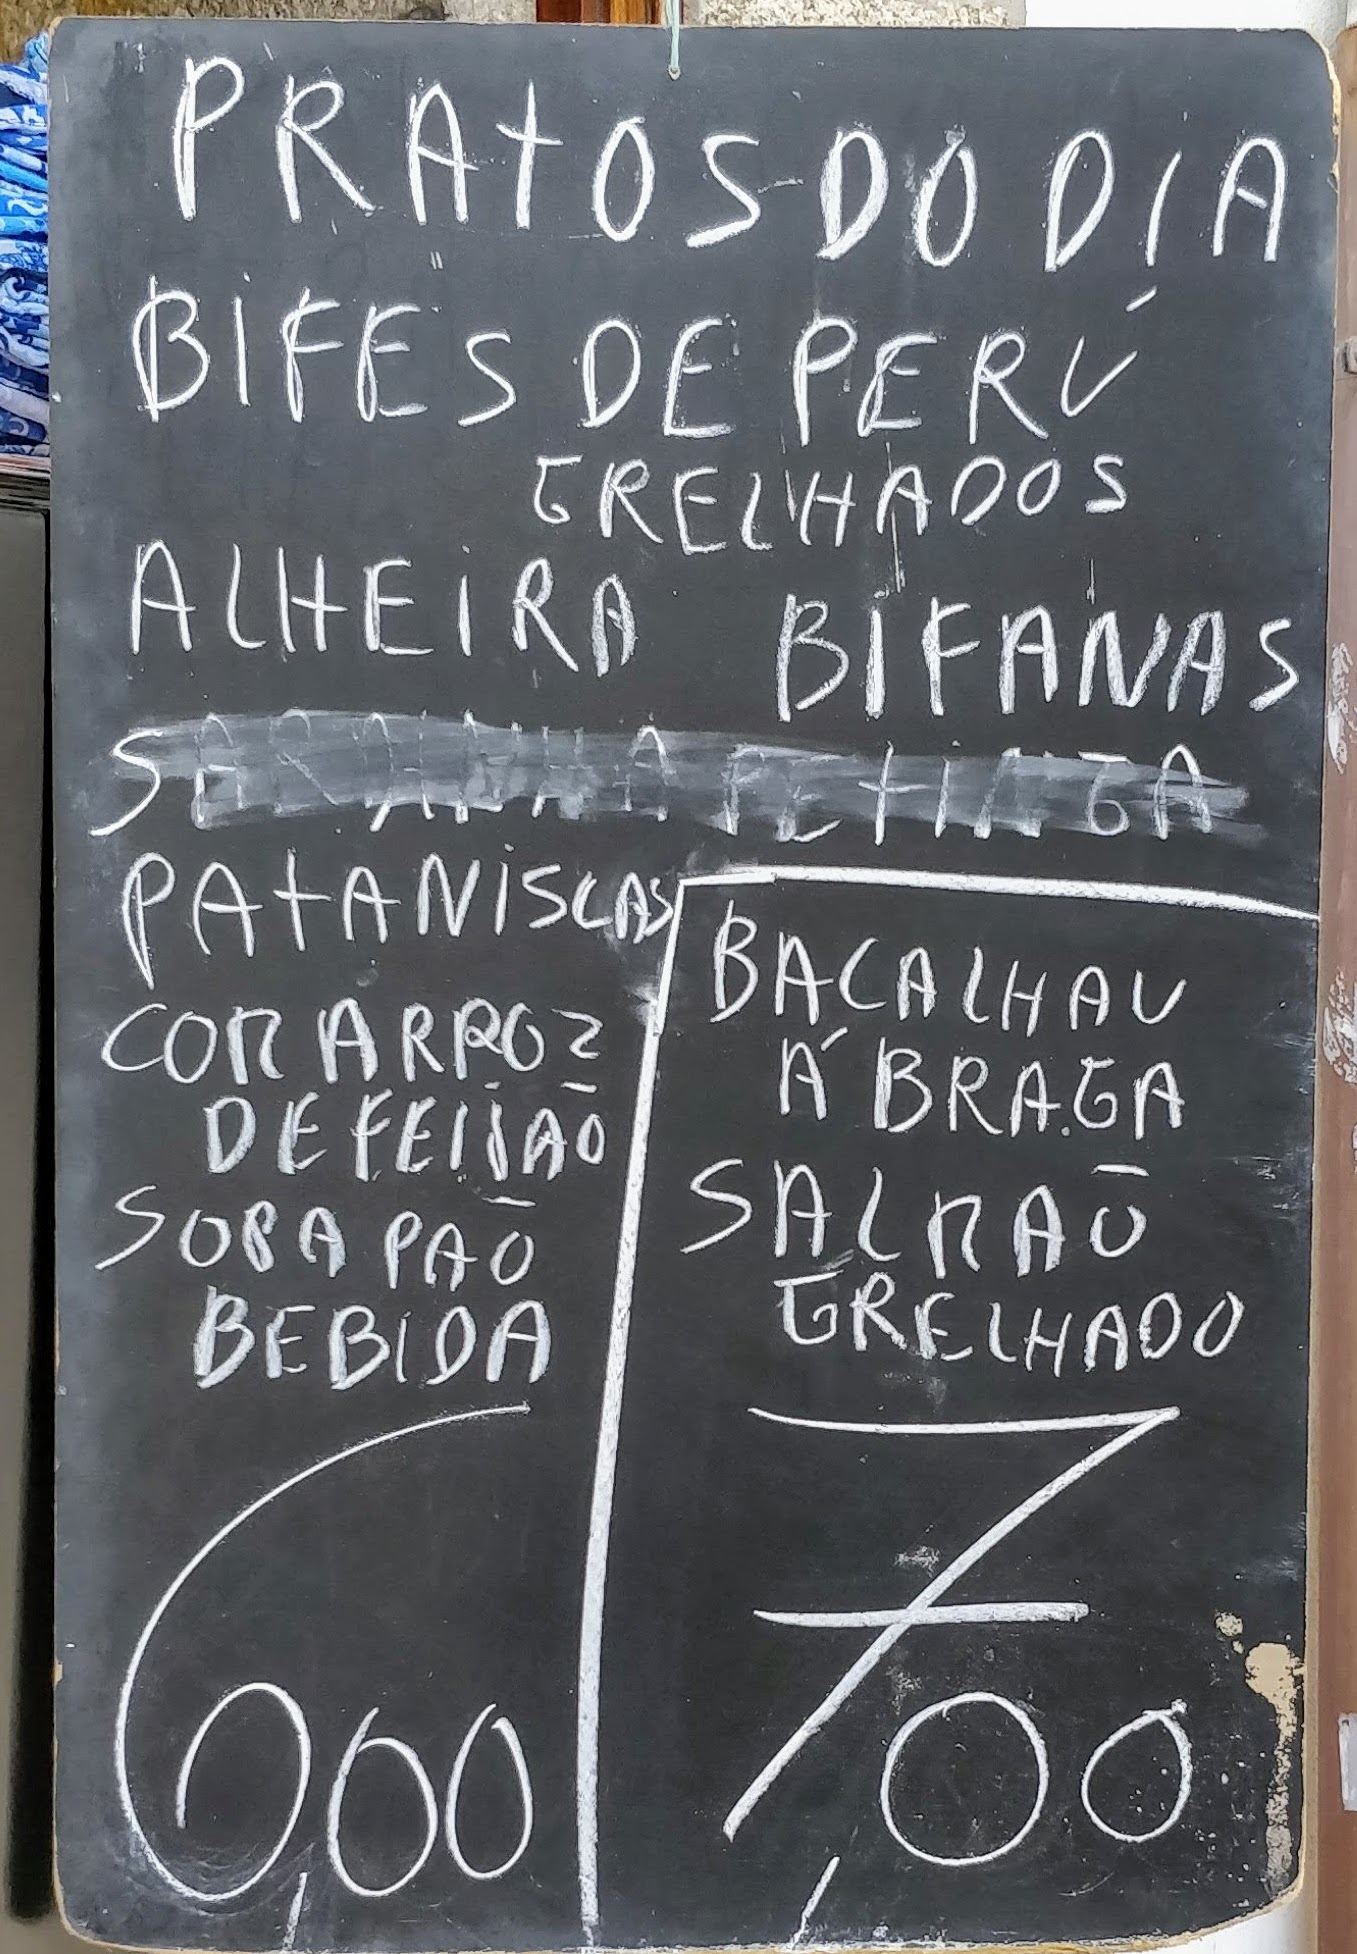 PRATOS DO DIA
BIFES DE PERÚ
GRELHADOS
ALHEIRA BIFANAS
SARDINHA PETINGA
PATANISCAS
COM ARROZ
DE FEIJÃO
SOPA PÃO
BEBIDA
6,00
BACALHAU
Á BRAGA
SALMÃO
GRELHADO
7,00